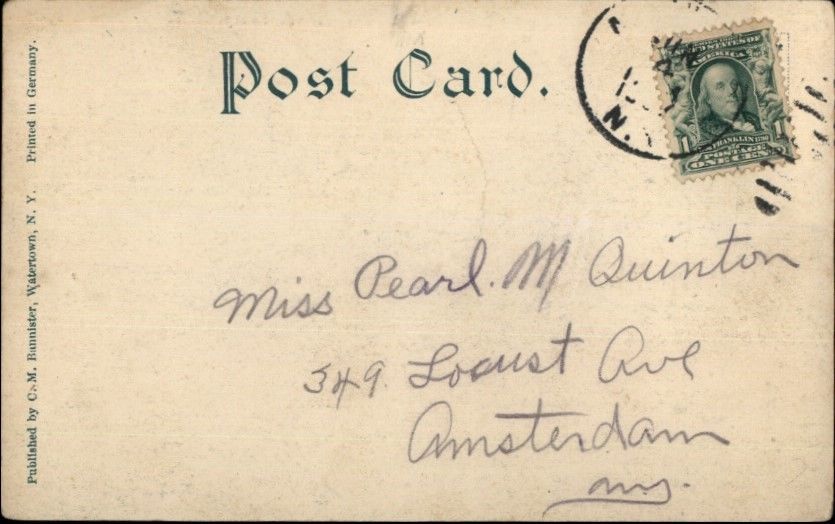 Post Card.
UNITED STATES OF
AMERICA
1 FRANKLIN 1790 1
POSTAGE
ONE CENT
N.
Miss Pearl. M Quinton
349 Locust Ave
Amsterdam
ny.
Published by C. M. Bannister, Watertown, N. Y. Printed in Germany.